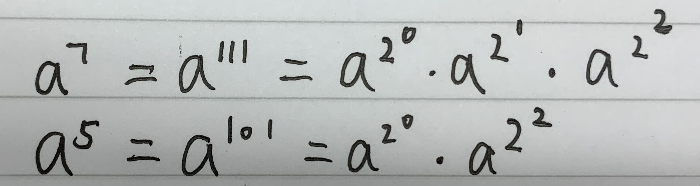 a⁷ = a¹¹¹ = a^{2^0} · a^{2^1} · a^{2^2}
a⁵ = a¹⁰¹ = a^{2^0} · a^{2^2}